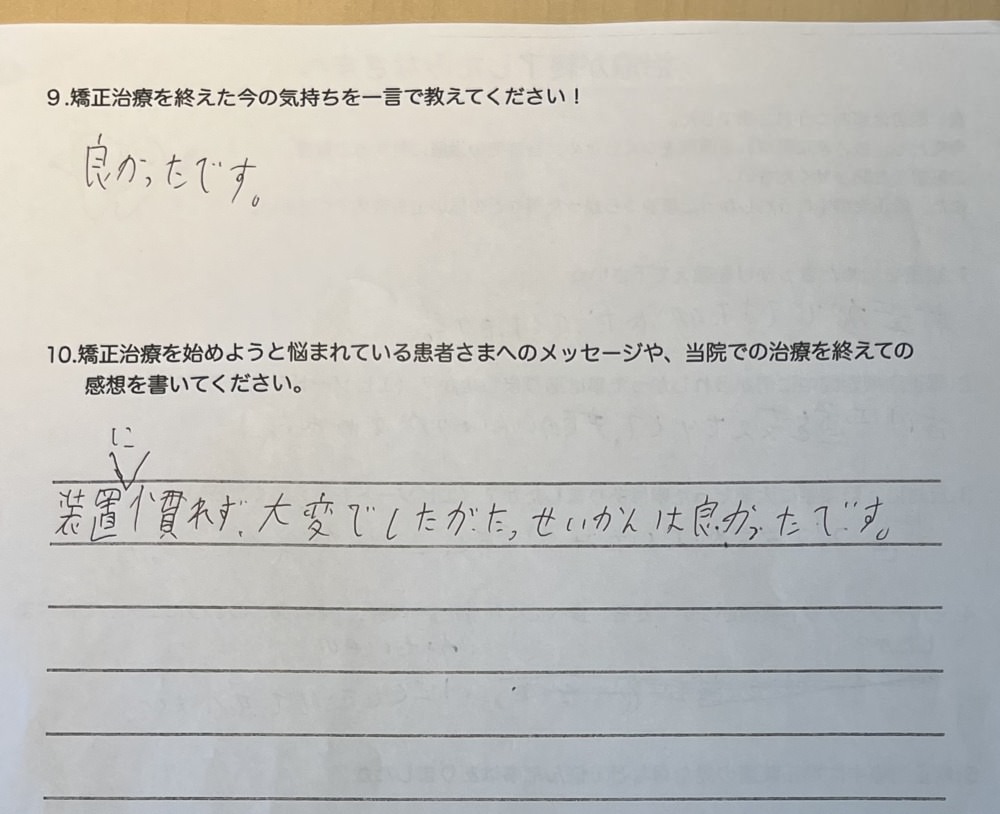 9.矯正治療を終えた今の気持ちを一言で教えてください！
良かったです。
10.矯正治療を始めようと悩まれている患者さまへのメッセージや、当院での治療を終えての
感想を書いてください。
装置に慣れず、大変でしたがたっせいかんは良かったです。